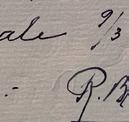 ale 9/3
R. B